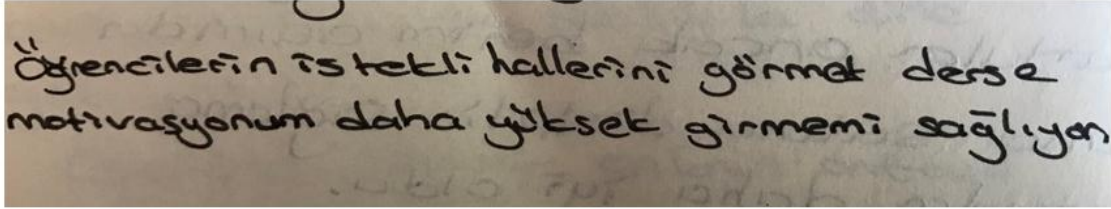 Öğrencilerin istekli hallerini görmek derse
motivasyonum daha yüksek girmemi sağlıyor